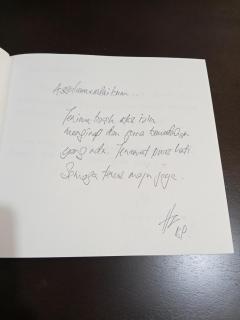 Assalamualaikum...
Terima kasih atas izin
menginap dan guna kemudahan
yang ada. Teramat puas hati.
Semoga terus maju jaya.
KP